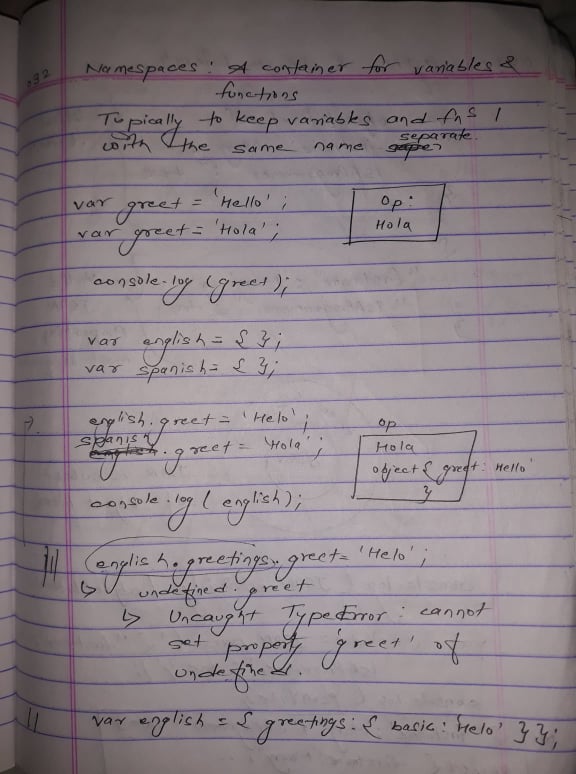 032 Namespaces : A container for variables &
functions
Typically to keep variables and fns
with the same name separate.
var greet = 'Hello' ;
var greet = 'Hola' ;
Op :
Hola
console.log (greet);
var english = { };
var spanish = { };
english.greet = 'Helo' ;
spanish.greet = 'Hola' ;
op
Hola
object { greet : Hello'
}
console.log ( english);
english.greetings.greet = 'Helo' ;
↳ undefined.greet
↳ Uncaught TypeError : cannot
set property 'greet' of
undefined.
var english = { greetings : { basic : 'Helo' } };